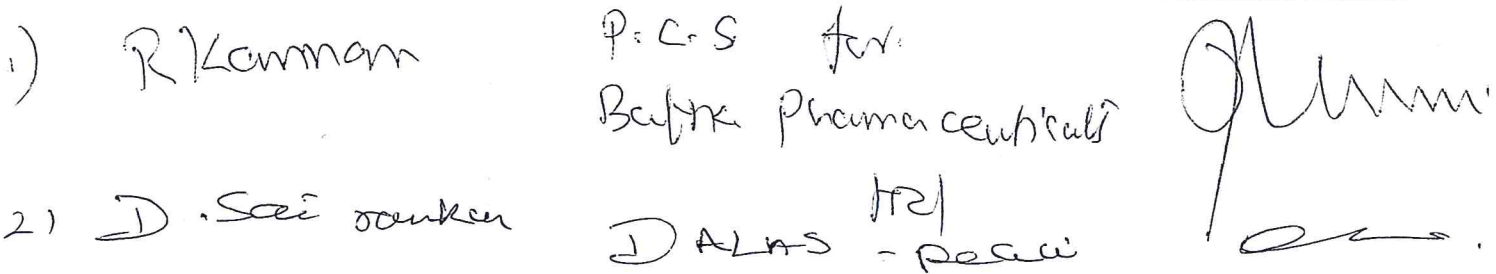 1) R Kannan P.C.S for
Bafna Pharmaceuticals
Ltd
2) D. Sai sankar DALAS -